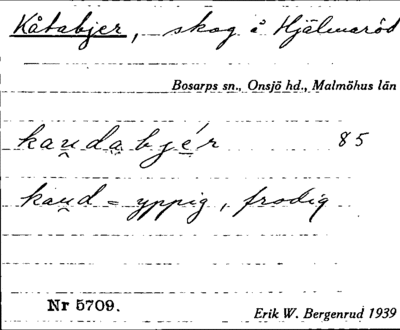 Kåtabjer, skog å Hjälmaröd
Bosarps sn., Onsjö hd., Malmöhus län
kau̯dabjér 85
kau̯d = yppig, frodig
Nr 5709.
Erik W. Bergenrud 1939